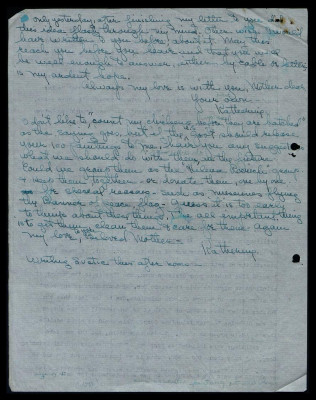 only yesterday, after finishing my letter to you did
this idea flash through my mind. Otherwise I would
have written to you before about it. May this
reach you safe, dear heart and that you will
be well enough to answer, either by cable or letter
is my ardent hope.
Always my love is with you, Mother dear
Your own
Katherine
I don't like to "count my chickens before they are hatched"
as the saying goes, but if the Gov't should release
your 100 paintings to me, have you any suggestions
what we should do with them in the future.
Could we group them as the
them for or donate them, one by one
for special reasons - such as museums flying
the Banner of Peace, etc. Guess it is too early
to think about these things. The all important thing
is to get them, clean them & care for them. Again
my love, beloved Mother -
Katherine
Writing Svetic this after noon -